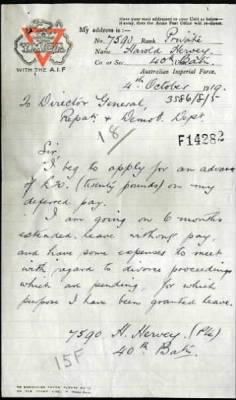 Have your mail addressed to your Unit as below
My address is:—
No. 7590 Rank Private
Name Harold Hervey
Co. or Ser. 40th Batn.
Australian Imperial Force.
WITH THE A.I.F
4th October 1919.
3586/E/5
To Director General,
Repat. & Demob. Dept.
18
F14282
Sir,
I beg to apply for an advance
of £20 (twenty pounds) on my
deferred pay.
I am going on 6 months
extended leave without pay,
and have some expenses to meet
with regard to divorce proceedings
which are pending, for which
purpose I have been granted leave.
7590 H. Hervey. (Pte)
40th Batn.
15F